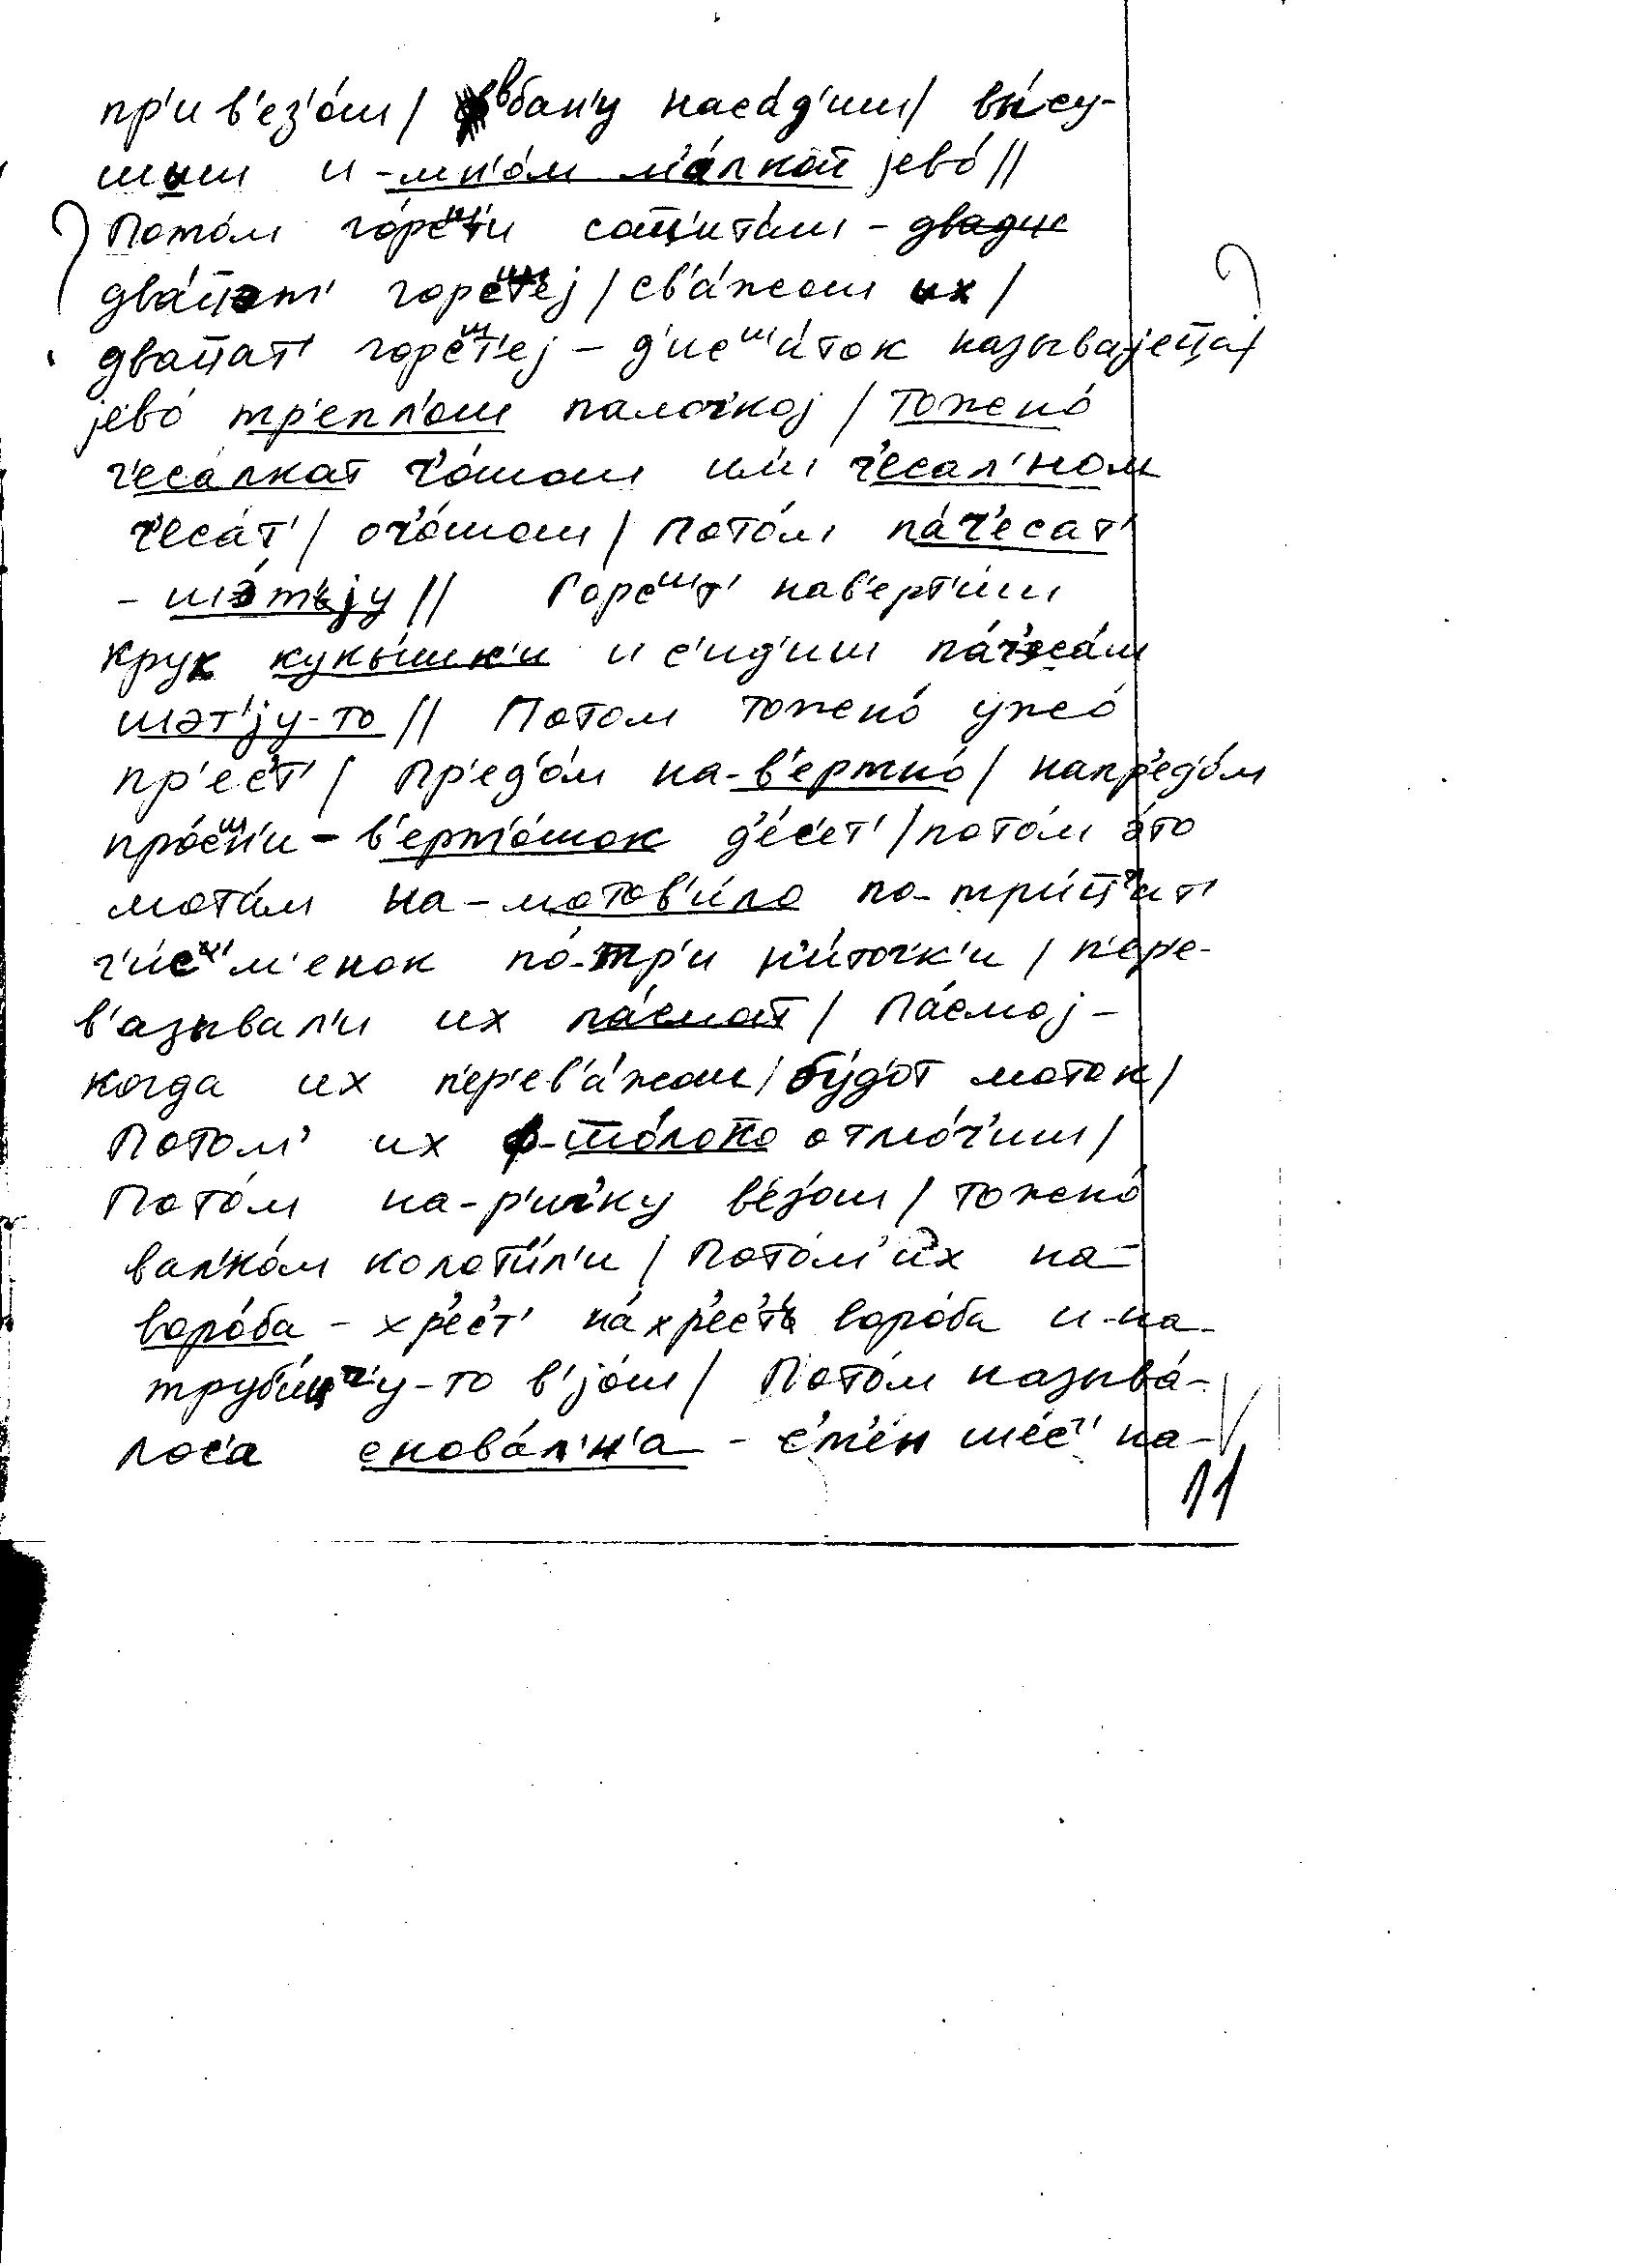 пр'ив'ез'о́ш/ вбан'у наса́д'иш/ вы́су-
шыш и-мн'о́м м'а́лкой jево́//
Потом го́рс'т'и сощита́ш -
два́ццэт' горс'т'еj / св'а́жош их /
дваццат' горс'т'еj - д'ис'ш'и́ток называjецца/
jево́ тр'епл'о́ш палоч'коj / тожено́
ч'еса́лкат ч'о́шош или ч'есал'ном
ч'еса́т' / оч'о́шош / потом па́ч'есат'
- шэ́т'jу // Горс'т' нав'ерт'и́ш
крук кукы́шк'и и с'ид'иш па́ч'еса́ш
шэт'jу-то // Потом тожено́ ужо́
пр'ес'т' / пр'ед'о́м на-в'ертно́ / напр'ед'о́м
про́с'н'и - в'ерт'о́шок д'е́с'ет' / пото́м э́то
мота́м на-мотов'и́ло по-три́цц'ит'
ч'и́с'м'енок по́-тр'и н'и́точк'и / п'ер'е-
в'азывал'и их па́смат / Па́смоj -
когда их п'ер'ев'а́жош / бу́д'от моток /
Потом их ф-то́локо отмо́ч'иш /
Пото́м на-р'ич'ку в'ез'ош / тожено́
вал'ко́м колоти́л'и / Пото́м их на-
воро́ба - хр'ес'т' на́хр'ес'т воро́ба и-на-
труби́цу-то в'jо́ш / Пото́м называ́-
лос'а сновал'н'а - с'т'е́н шес'т' на-
11